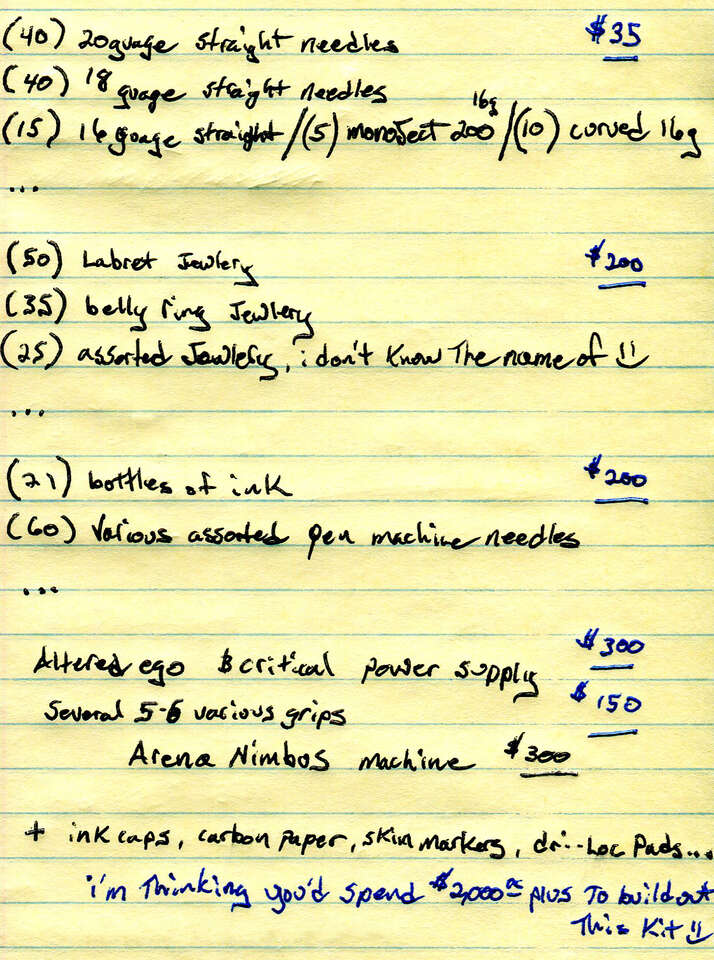 (40) 20guage straight needles $35
(40) 18 guage straight needles
(15) 16 guage straight /(5) monoject 200 16g /(10) curved 16g
...
(50) Labret Jewlery $200
(35) belly ring Jewlery
(25) assorted Jewlery, i don't know The name of :)
...
(21) bottles of ink $200
(60) Various assorted pen machine needles
...
Altered ego & critical power supply $300
Several 5-6 various grips $150
Arena Nimbos machine $300
+ ink caps, carbon paper, skin markers, dri-Loc Pads...
i'm Thinking you'd spend $2,000 plus To build out
This Kit :)